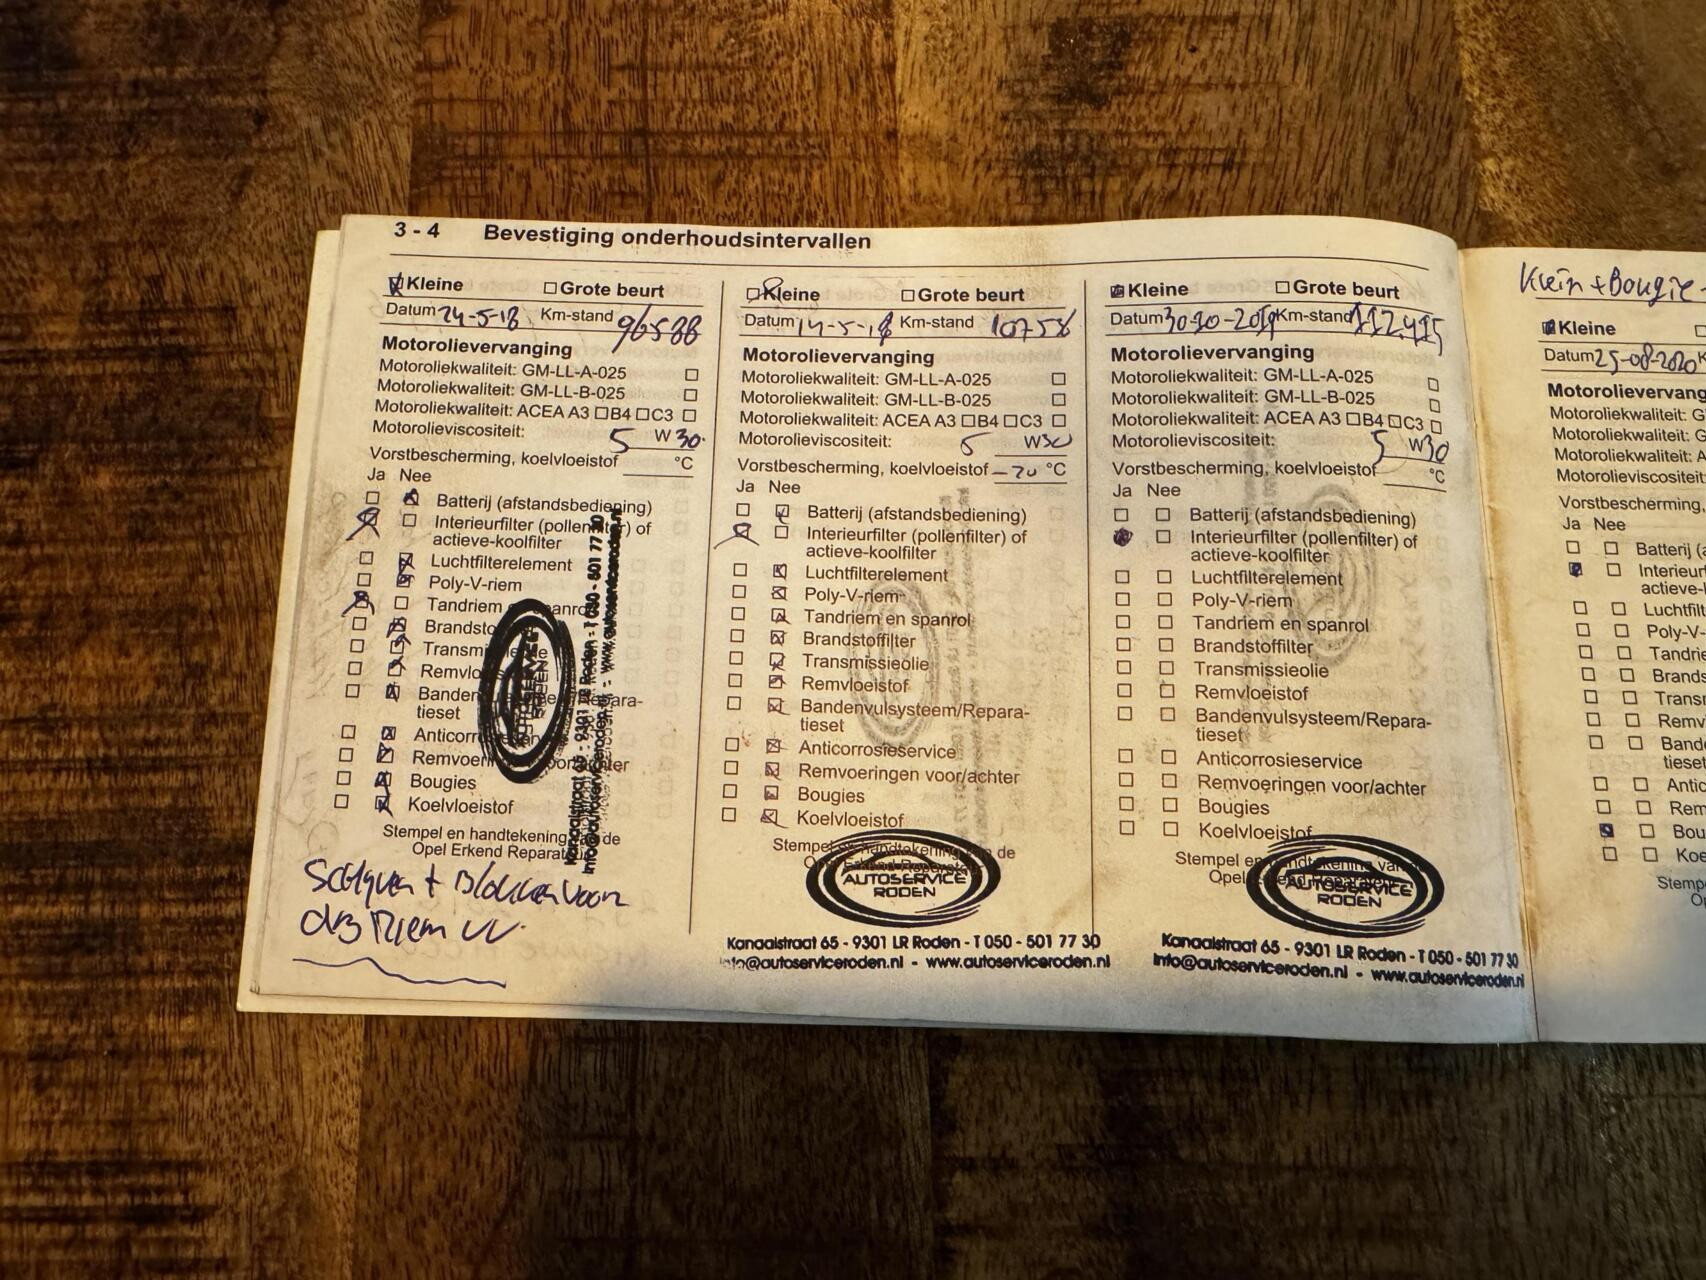 3 - 4 Bevestiging onderhoudsintervallen
Kleine Grote beurt
Datum 24-5-18 Km-stand 96588
Motorolievervanging
Motoroliekwaliteit: GM-LL-A-025
Motoroliekwaliteit: GM-LL-B-025
Motoroliekwaliteit: ACEA A3 B4 C3
Motorolieviscositeit: 5 W 30
Vorstbescherming, koelvloeistof °C
Ja Nee
Batterij (afstandsbediening)
Interieurfilter (pollenfilter) of
actieve-koolfilter
Luchtfilterelement
Poly-V-riem
Tandriem en spanrol
Bougies
Koelvloeistof
Stempel en handtekening van de
Opel Erkend
AUTOSERVICE
RODEN
Kanaalstraat 65 - 9301 LR Roden - T 050 - 501 77 30
info@autoserviceroden.nl - www.autoserviceroden.nl
+ Blokken voor
riem
Kleine Grote beurt
Datum 14-5-18 Km-stand 10758
Motorolievervanging
Motoroliekwaliteit: GM-LL-A-025
Motoroliekwaliteit: GM-LL-B-025
Motoroliekwaliteit: ACEA A3 B4 C3
Motorolieviscositeit: 5 W30
Vorstbescherming, koelvloeistof -20 °C
Ja Nee
Batterij (afstandsbediening)
Interieurfilter (pollenfilter) of
actieve-koolfilter
Luchtfilterelement
Poly-V-riem
Tandriem en spanrol
Brandstoffilter
Transmissieolie
Remvloeistof
Bandenvulsysteem/Repara-
tieset
Anticorrosieservice
Remvoeringen voor/achter
Bougies
Koelvloeistof
Stempel en handtekening van de
AUTOSERVICE
RODEN
Kanaalstraat 65 - 9301 LR Roden - T 050 - 501 77 30
info@autoserviceroden.nl - www.autoserviceroden.nl
Kleine Grote beurt
Datum 30-10-2019 Km-stand 112415
Motorolievervanging
Motoroliekwaliteit: GM-LL-A-025
Motoroliekwaliteit: GM-LL-B-025
Motoroliekwaliteit: ACEA A3 B4 C3
Motorolieviscositeit: 5 W30
Vorstbescherming, koelvloeistof °C
Ja Nee
Batterij (afstandsbediening)
Interieurfilter (pollenfilter) of
actieve-koolfilter
Luchtfilterelement
Poly-V-riem
Tandriem en spanrol
Brandstoffilter
Transmissieolie
Remvloeistof
Bandenvulsysteem/Repara-
tieset
Anticorrosieservice
Remvoeringen voor/achter
Bougies
Koelvloeistof
Stempel en handtekening van
AUTOSERVICE
RODEN
Kanaalstraat 65 - 9301 LR Roden - T 050 - 501 77 30
info@autoserviceroden.nl - www.autoserviceroden.nl
Klein + Bougie
Kleine
Datum 25-08-2020 K
Motorolievervang
Motoroliekwaliteit: G
Motoroliekwaliteit: G
Motoroliekwaliteit: A
Motorolieviscositeit:
Vorstbescherming,
Ja Nee
Batterij (a
Interieurf
actieve-k
Luchtfilt
Poly-V-r
Tandrie
Brands
Transm
Remv
Band
tieset
Antic
Rem
Bou
Koe
Stemp
Op